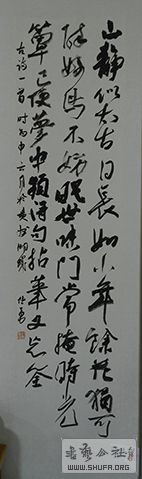 山静似太古日長如小年餘花猶可
醉好鳥不妨眠世味門常掩時光
簟已便夢中頻得句拈筆又忘筌
古詩一首 時丙申六月於
書藝公社
WWW.SHUFA.ORG